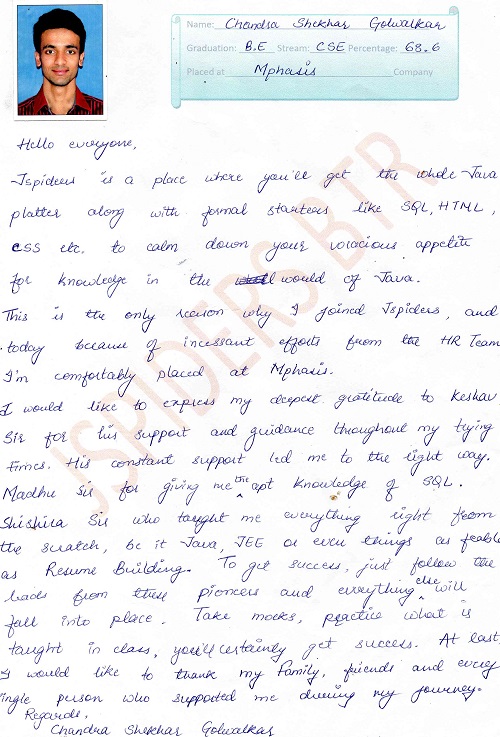 Name: Chandra Shekhar Golwalkar
Graduation: B.E Stream: CSE Percentage: 68.6
Placed at Mphasis Company
Hello everyone,
Jspiders is a place where you'll get the whole Java
platter along with formal starters like SQL, HTML,
CSS etc. to calm down your voracious appetite
for knowledge in the world of Java.
This is the only reason why I joined Jspiders, and
today because of incessant efforts from the HR Team
I'm comfortably placed at Mphasis.
I would like to express my deepest gratitude to Keshav
Sir for his support and guidance throughout my trying
times. His constant support led me to the right way.
Madhu Sir for giving me the apt knowledge of SQL.
Shishira Sir who taught me everything right from
the scratch, be it Java, JEE or even things as feable
as Resume Building. To get success, just follow the
leads from these pioneers and everything else will
fall into place. Take mocks, practice what is
taught in class, you'll certainly get success. At last,
I would like to thank my family, friends and every
ingle person who supported me during my journey.
Regards,
Chandra Shekhar Golwalkar
JSPIDERS BTR